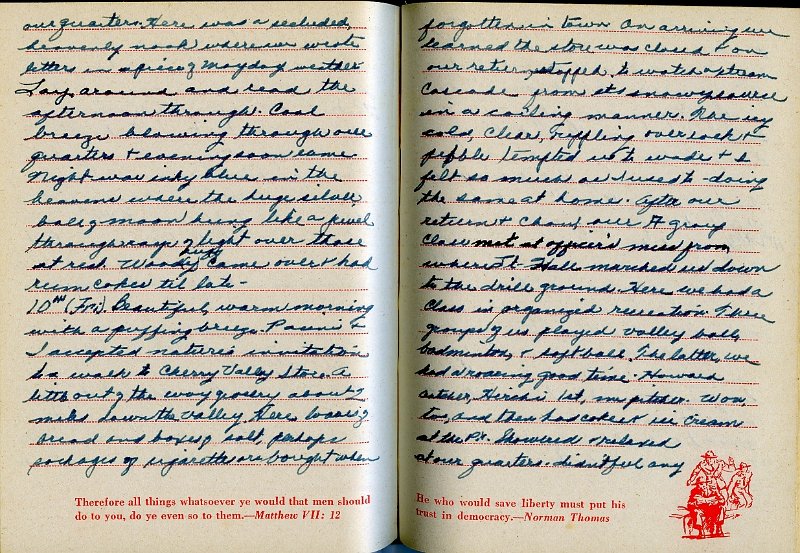 our quarters. Here was a secluded,
heavenly nook where we wrote
letters in a piece of Mayday weather.
Lay around and read the
afternoon through. Cool
breeze blowing through our
quarters & evening soon came.
Night was inky blue in the
heavens where the huge silver
ball of moon hung like a jewel
through rays of light over those
at rest. Woody came over & had
rum cokes til late -
10th (Fri). Beautiful, warm morning
with a puffing breeze. Pacini &
I accepted nature's invitation
to a walk to Cherry Valley Store. A
little out of the way grocery about 2
miles down the valley. Here,
bread and boxes of salt, perhaps
packages of cigarettes are bought when
Therefore all things whatsoever ye would that men should
do to you, do ye even so to them.—Matthew VII: 12
forgotten in town. On arriving we
learned the store was closed & on
our return, stopped to watch a stream
cascade from its snowy source
in a coiling manner. The icy
cold, clear, riffling over rock &
pebble tempted us to wade & I
felt so much as I used to doing
the same at home. After our
return & chow, our A group
class met at officer's mess from
where Lt. Hall marched us down
to the drill ground. Here we had a
class in organized recreation. Three
groups of us played volley ball,
badminton, & soft ball. The latter, we
had a roaring good time. Howard
catcher, 1st, me pitcher. Won
two, and then had cokes & ice cream
at the Px. Showered & relaxed
at our quarters. Didn't feel any
He who would save liberty must put his
trust in democracy.—Norman Thomas